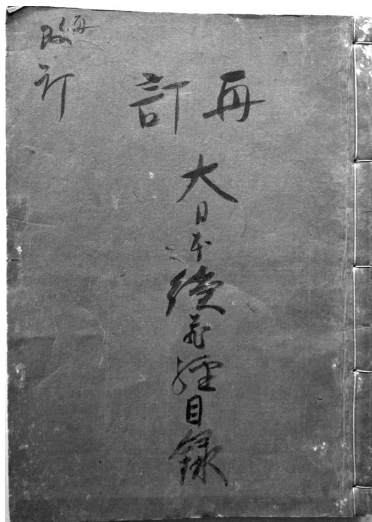 再訂
大日本續藏經目録
再改訂